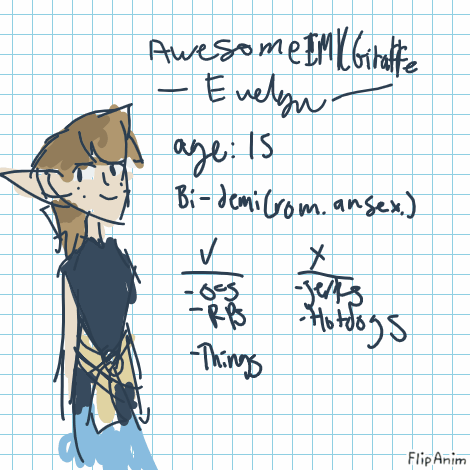 AwesomeIMKGiraffe
— Evelyn —
age: 15
Bi-demi(rom. an sex.)
✓ X
-ocs -jerks
-RPs -Hotdogs
-Things
FlipAnim